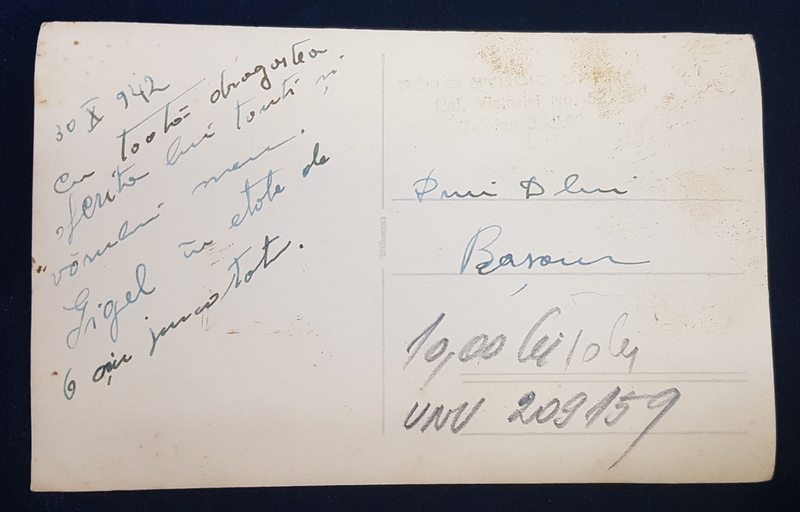 30 X 942
cu toată dragostea
oferită lui tanti și
vărului meu.
Gigel în etate de
6 ani jumatat.
FOTO
Cal. Victoriei No.
Dnei Dlui
10,00 lei
UNU 209159